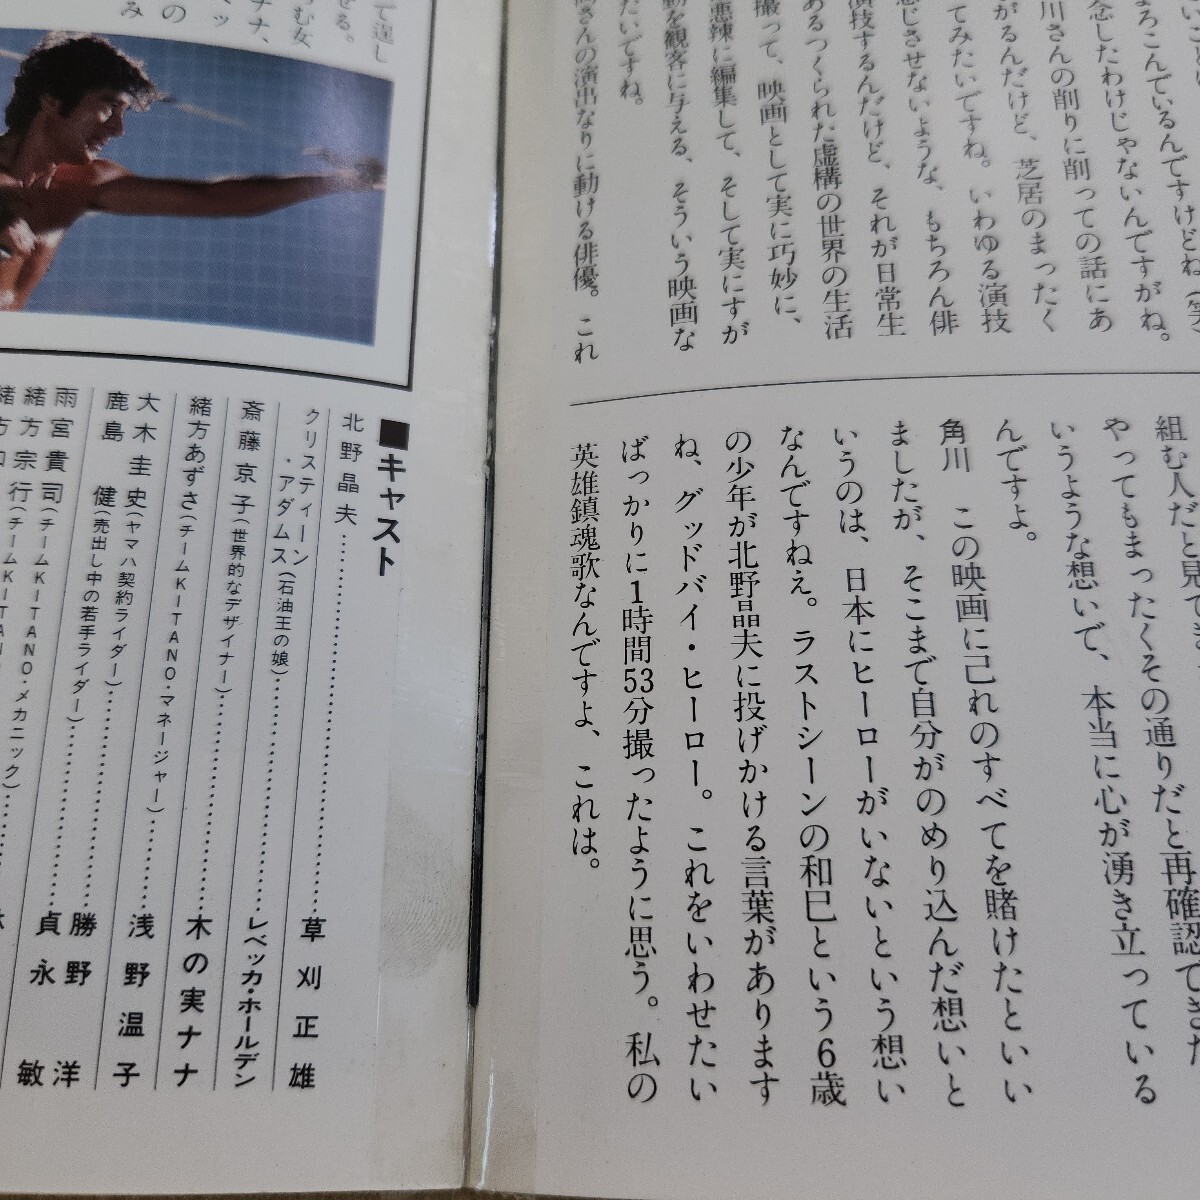 いうことですけどね（笑
ろこんでいるんですけどね
念したわけじゃないんですがね。
川さんの削りに削っての話にあ
がるんだけど、芝居のまったく
てみたいですね。いわゆる演技
感じさせないような、もちろん俳
演技するんだけど、それが日常生
あるつくられた虚構の世界の生活
撮って、映画として実に巧妙に、
悪辣に編集して、そして実にすが
動を観客に与える、そういう映画な
たいですね。
さんの演出なりに動ける俳優。これ
組む人だと見てま
やってもまったくその通りだと再確認できた
いうような想いで、本当に心が湧き立っている
んですよ。
角川　この映画に己れのすべてを賭けたといい
ましたが、そこまで自分がのめり込んだ想いと
いうのは、日本にヒーローがいないという想い
なんですねぇ。ラストシーンの和巳という6歳
の少年が北野晶夫に投げかける言葉があります
ね、グッドバイ・ヒーロー。これをいわせたい
ばっかりに1時間53分撮ったように思う。私の
英雄鎮魂歌なんですよ、これは。
て逞し
せる。
む女
チナ、
ッ
の
み
■キャスト
北野晶夫…………草刈正雄
クリスティーン・アダムス（石油王の娘）…………レベッカ・ホールデン
斎藤京子（世界的なデザイナー）…………木の実ナナ
緒方あずさ（チームKITANO・マネージャー）…………浅野温子
大木圭史（ヤマハ契約ライダー）…………勝野洋
鹿島健（売出し中の若手ライダー）…………貞永敏
雨宮貴司（チームKITANO・メカニック）…………
緒方宗行（チームKITANO・
緒方